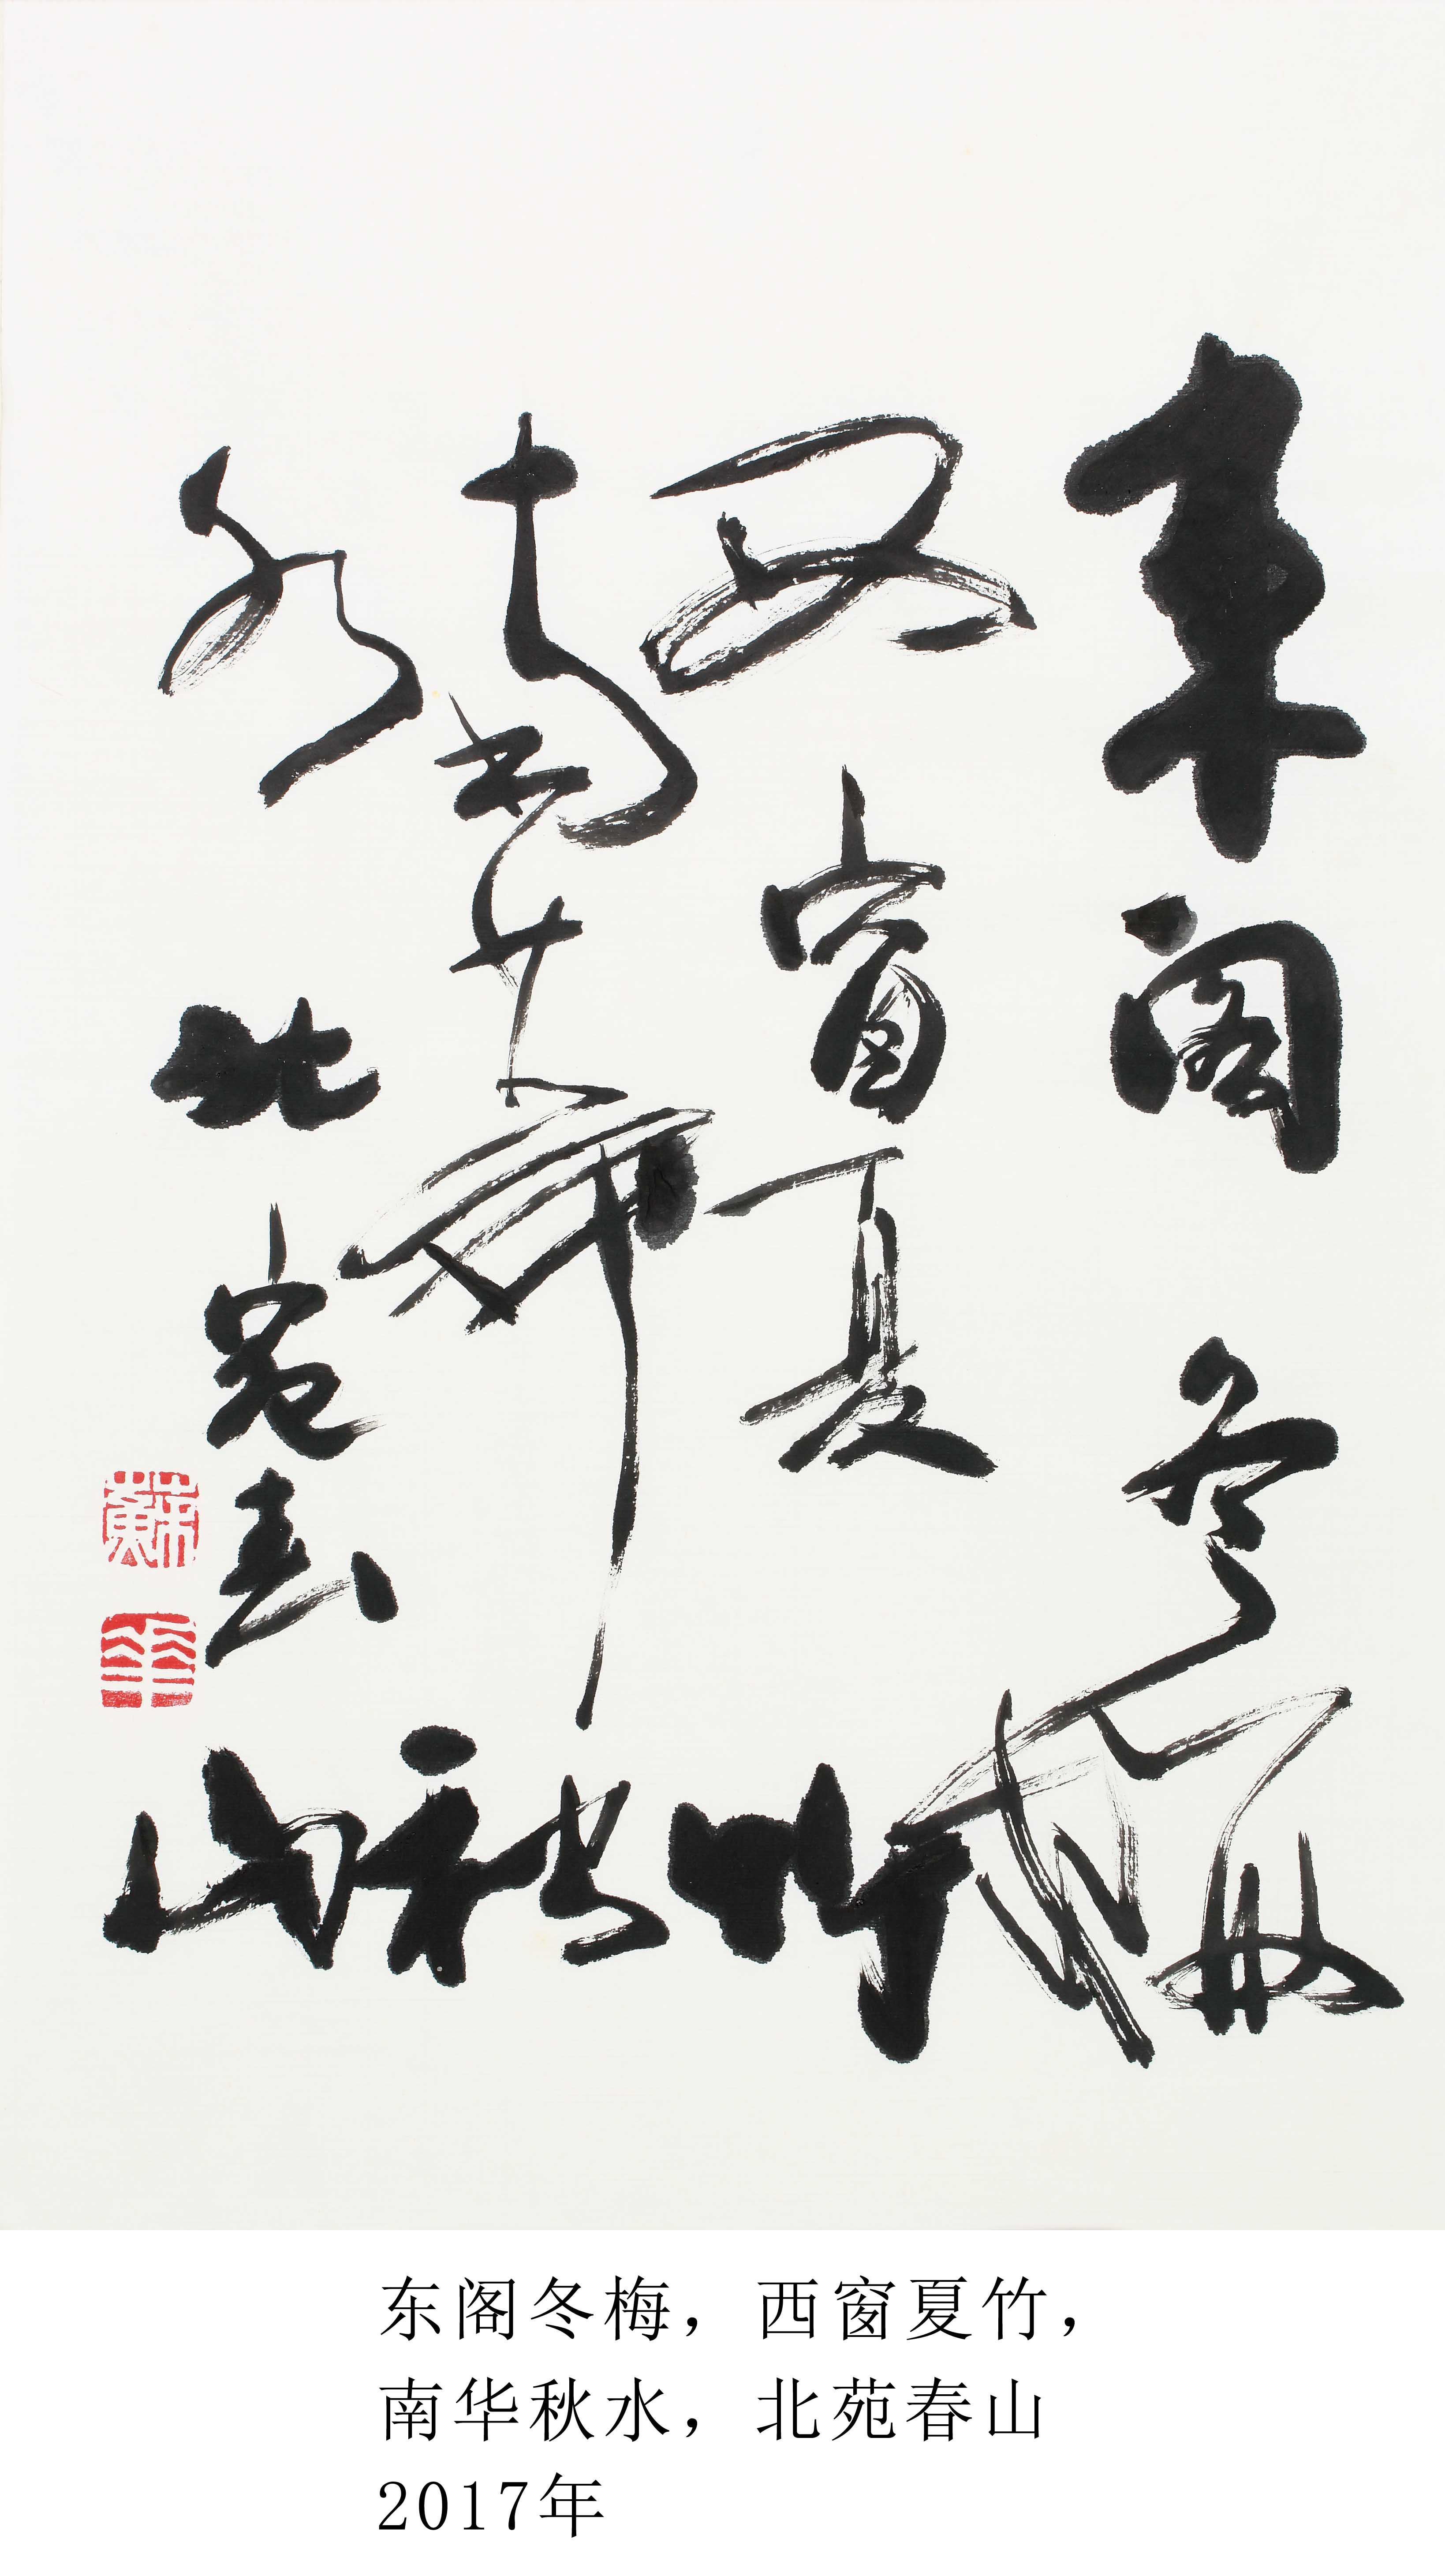 東阁冬梅
西窗夏竹
南華秋
水北苑春山
蘇
东阁冬梅，西窗夏竹，
南华秋水，北苑春山
2017年